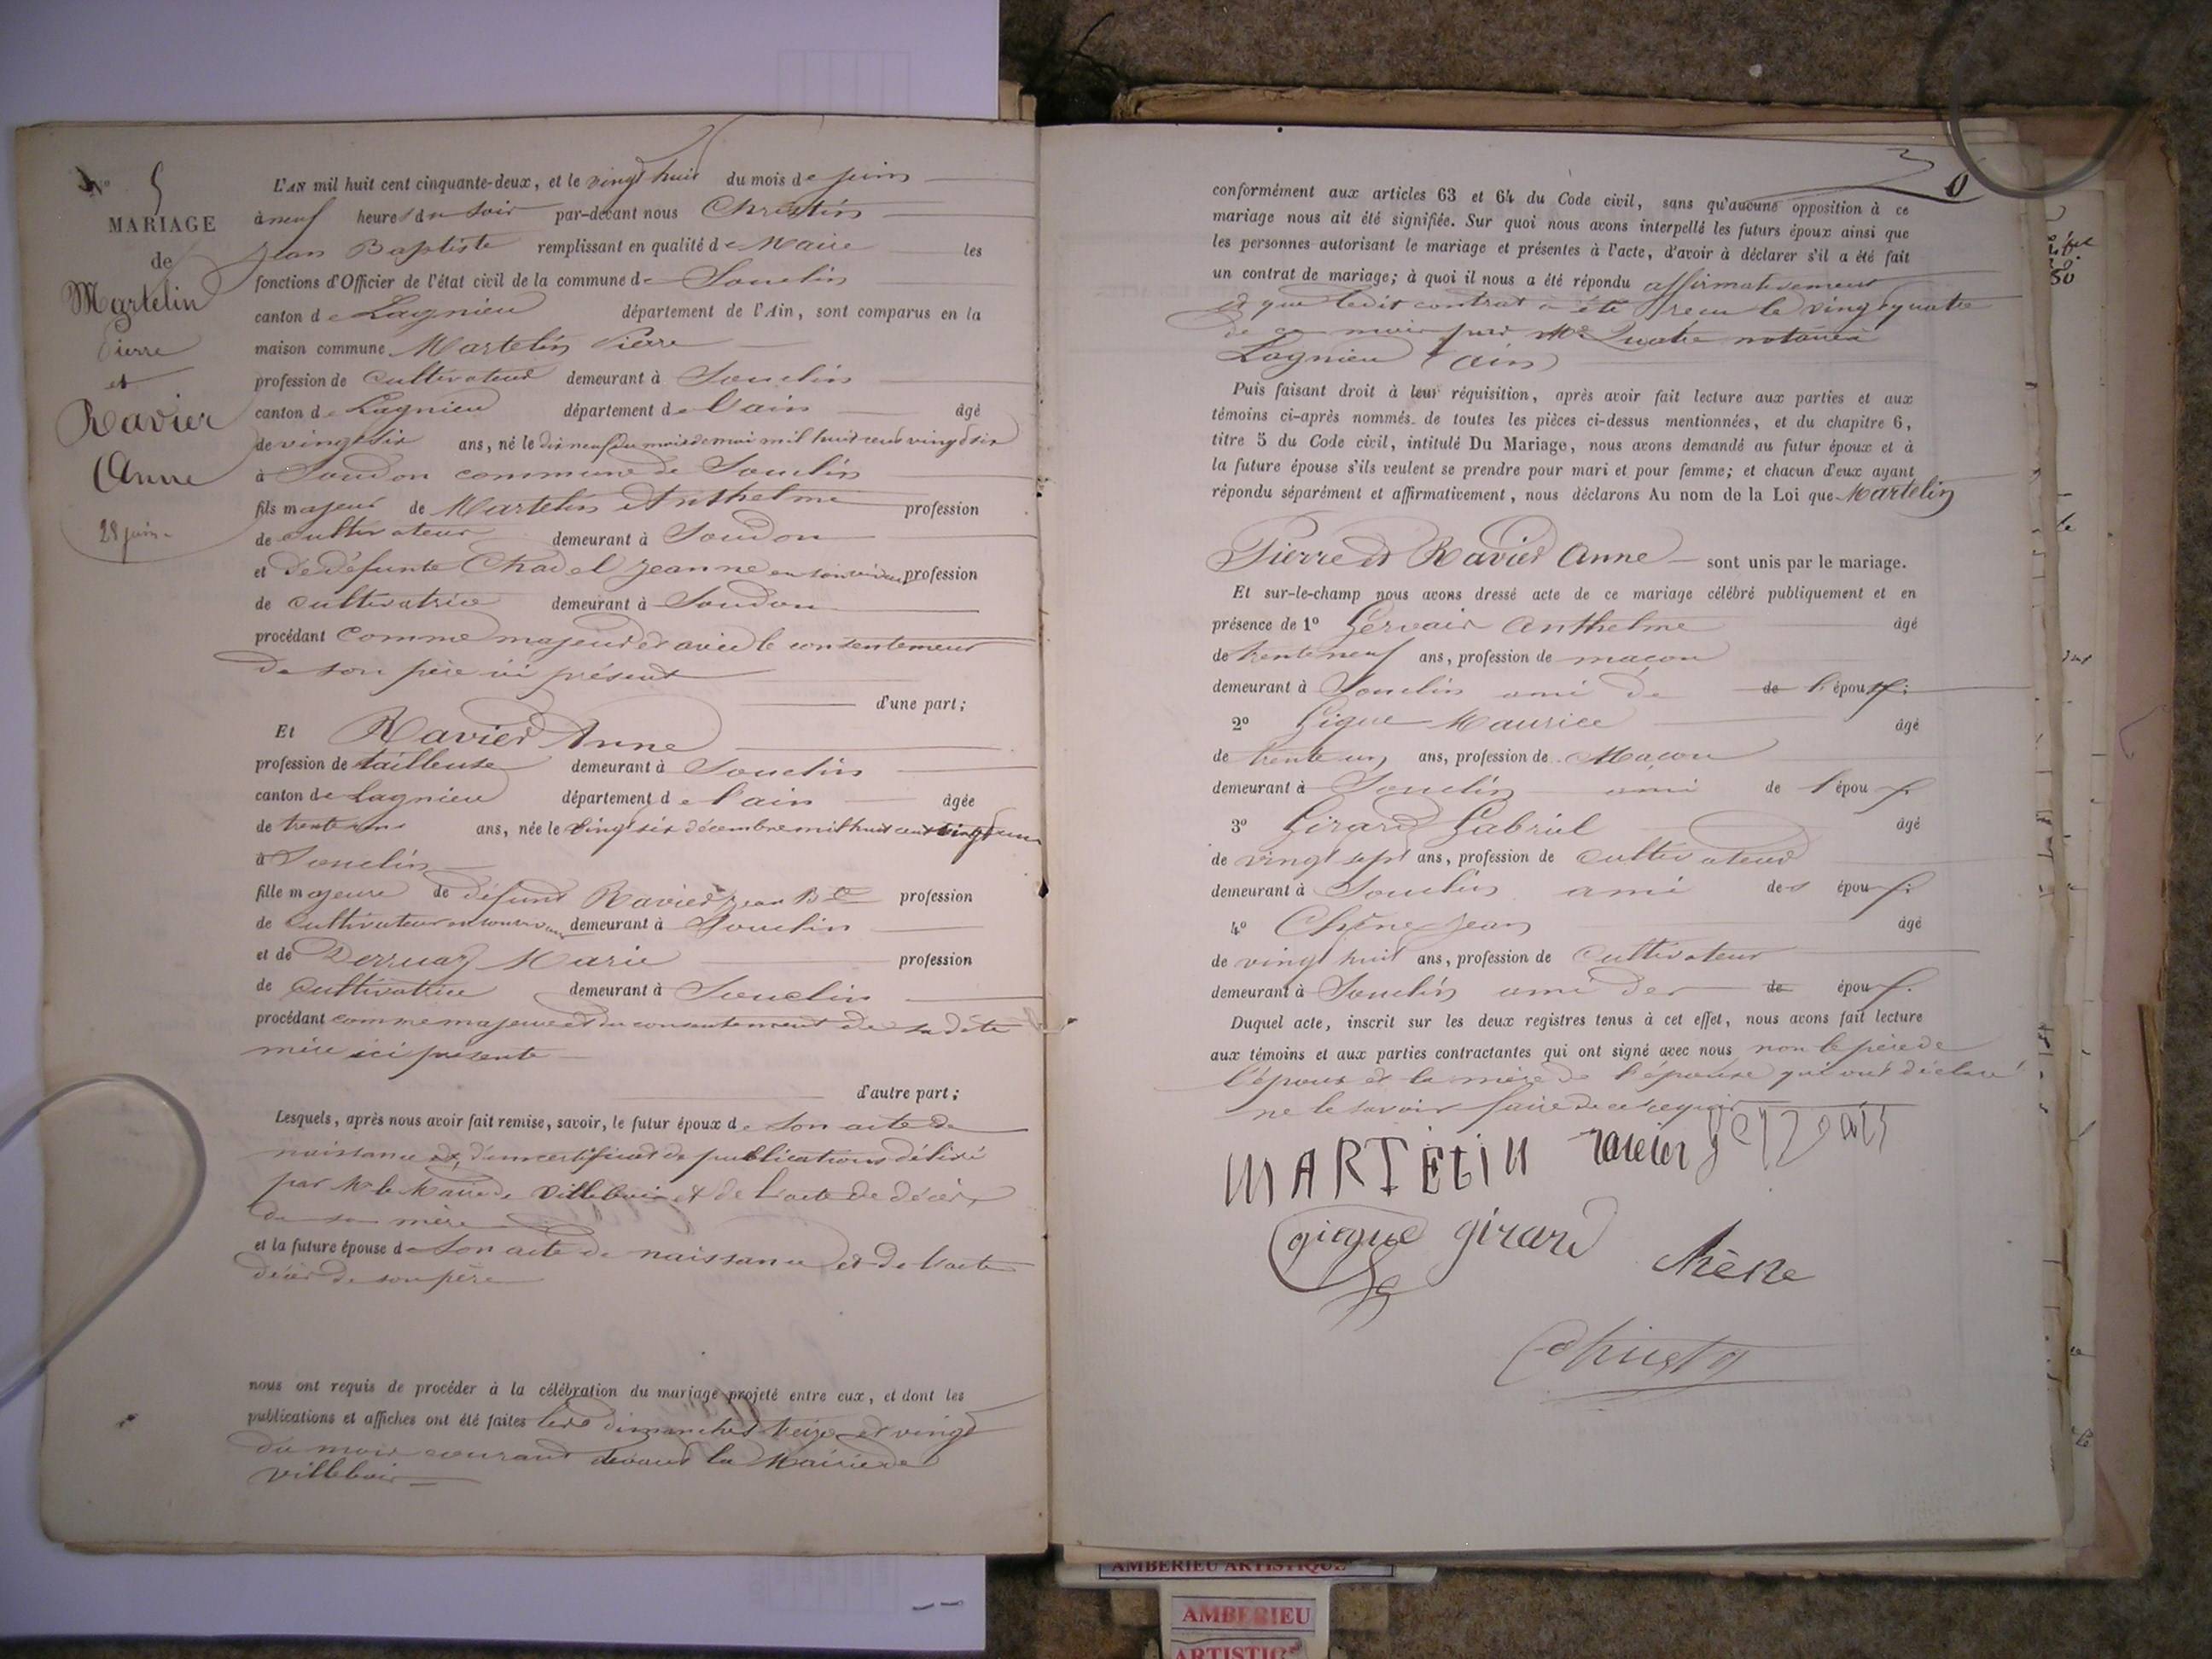 N° 5
MARIAGE
de
Martelin
Pierre
et
Ravier
Anne
28 juin
L'AN mil huit cent cinquante-deux, et le vingt huit du mois de juin
à neuf heures du soir par-devant nous Chrestin
Jean Baptiste remplissant en qualité de Maire les
fonctions d'Officier de l'état civil de la commune de Souclin
canton de Lagnieu département de l'Ain, sont comparus en la
maison commune Martelin Pierre
profession de cultivateur demeurant à Souclin
canton de Lagnieu département de l'ain âgé
de vingt six ans, né le dix neuf du mois de mai mil huit cent vingt six
à Soudon commune de Souclin
fils majeur de Martelin Anthelme profession
de cultivateur demeurant à Soudon
et de défunte Chavel Jeanne en son vivant profession
de cultivatrice demeurant à Soudon
procédant comme majeur et avec le consentement
de son père ici présent
d'une part;
Et Ravier Anne
profession de tailleuse demeurant à Souclin
canton de Lagnieu département de l'ain âgée
de trente ans, née le vingt six décembre mil huit cent vingt un
à Souclin
fille majeure de défunt Ravier Jean Bte profession
de cultivateur en son vivant demeurant à Souclin
et de Derruaz Marie profession
de cultivatrice demeurant à Souclin
procédant comme majeure et du consentement de sa dite
mère ici présente
d'autre part;
Lesquels, après nous avoir fait remise, savoir, le futur époux de son acte de
naissance et d'un certificat de publications délivré
par Mr le Maire de Villebois et de l'acte de décès
de sa mère
et la future épouse de son acte de naissance et de l'acte
décès de son père
nous ont requis de procéder à la célébration du mariage projeté entre eux, et dont les
publications et affiches ont été faites les dimanches treize et vingt
du mois courant devant la Mairie de
Villebois
6
conformément aux articles 63 et 64 du Code civil, sans qu'aucune opposition à ce
mariage nous ait été signifiée. Sur quoi nous avons interpellé les futurs époux ainsi que
les personnes autorisant le mariage et présentes à l'acte, d'avoir à déclarer s'il a été fait
un contrat de mariage; à quoi il nous a été répondu affirmativement
et que ledit contrat a été recu le vingt quatre
de ce mois par Me notaire à
Lagnieu (ain)
Puis faisant droit à leur réquisition, après avoir fait lecture aux parties et aux
témoins ci-après nommés de toutes les pièces ci-dessus mentionnées, et du chapitre 6,
titre 5 du Code civil, intitulé Du Mariage, nous avons demandé au futur époux et à
la future épouse s'ils veulent se prendre pour mari et pour femme; et chacun d'eux ayant
répondu séparément et affirmativement, nous déclarons Au nom de la Loi que Martelin
Pierre et Ravier Anne sont unis par le mariage.
Et sur-le-champ nous avons dressé acte de ce mariage célébré publiquement et en
présence de 1° Gervais Anthelme âgé
de trente neuf ans, profession de maçon
demeurant à Souclin ami de de l'époux;
2° Gigue Maurice âgé
de trente un ans, profession de Maçon
demeurant à Souclin ami de l'époux
3° Girard Gabriel âgé
de vingt sept ans, profession de cultivateur
demeurant à Souclin ami des époux;
4° Chêne Jean âgé
de vingt huit ans, profession de cultivateur
demeurant à Souclin ami des de époux.
Duquel acte, inscrit sur les deux registres tenus à cet effet, nous avons fait lecture
aux témoins et aux parties contractantes qui ont signé avec nous non le père de
l'époux et la mère de l'épouse qui ont déclaré
ne le savoir faire de ce requis
MARTELIN ravier
gigue girard chêne
AMBERIEU ARTISTIQUE
AMBERIEU
ARTISTIQ